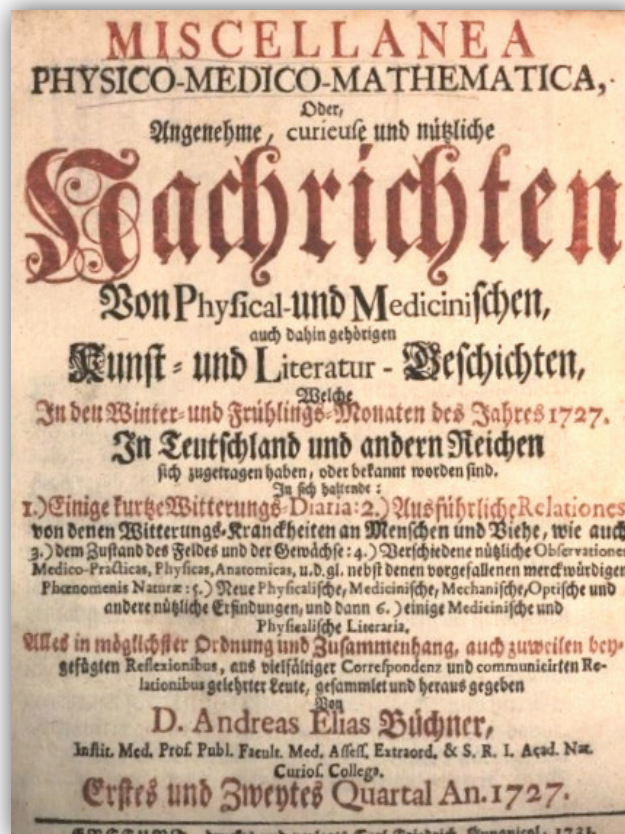 MISCELLANEA
PHYSICO-MEDICO-MATHEMATICA,
Oder,
Angenehme, curieuse und nützliche
Nachrichten
Von Physical- und Medicinischen,
auch dahin gehörigen
Kunst- und Literatur-Geschichten,
Welche
In den Winter- und Frühlings-Monaten des Jahres 1727.
In Teutschland und andern Reichen
sich zugetragen haben, oder bekannt worden sind.
In sich haltende:
1.) Einige kurtze Witterungs-Diaria: 2.) Ausführliche Relationes
von denen Witterungs-Kranckheiten an Menschen und Viehe, wie auch
3.) dem Zustand des Feldes und der Gewächse: 4.) Verschiedene nützliche Observationes
Medico-Practicas, Physicas, Anatomicas, u.d.gl. nebst denen vorgefallenen merckwürdigen
Phœnomenis Naturæ: 5.) Neue Physicalische, Medicinische, Mechanische, Optische und
andere nützliche Erfindungen, und dann 6.) einige Medicinische und
Physicalische Literaria.
Alles in möglichster Ordnung und Zusammenhang, auch zuweilen bey-
gefügten Reflexionibus, aus vielfältiger Correspondenz und communicirten Re-
lationibus gelehrter Leute, gesammlet und heraus gegeben
Von
D. Andreas Elias Büchner,
Instit. Med. Prof. Publ. Facult. Med. Assess. Extraord. & S. R. I. Acad. Nat.
Curios. Collega.
Erstes und Zweytes Quartal An. 1727.